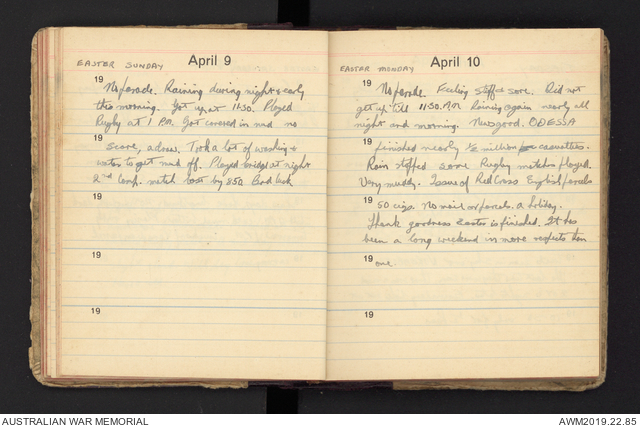 EASTER SUNDAY
April 9
19 No parade. Raining during night & early
this morning. Got up at 11.50. Played
Rugby at 1 P.M. Got covered in mud no
19 score, a draw. Took a lot of washing &
water to get mud off. Played bridge at night
2nd Comp. match lost by 850. Bad luck
19
19
19
EASTER MONDAY
April 10
19 No parade. Feeling stiff & sore. Did not
get up till 11.50. A.M. Raining again nearly all
night and morning. News good. ODESSA
19 finished nearly ½ million casualties.
Rain stopped some Rugby matches played.
Very muddy. Issue of Red Cross English parcels
19 50 cigs. No mail or parcels. a holiday.
Thank goodness easter is finished. It has
been a long weekend in more respects than
19 one.
19
AUSTRALIAN WAR MEMORIAL
AWM2019.22.85